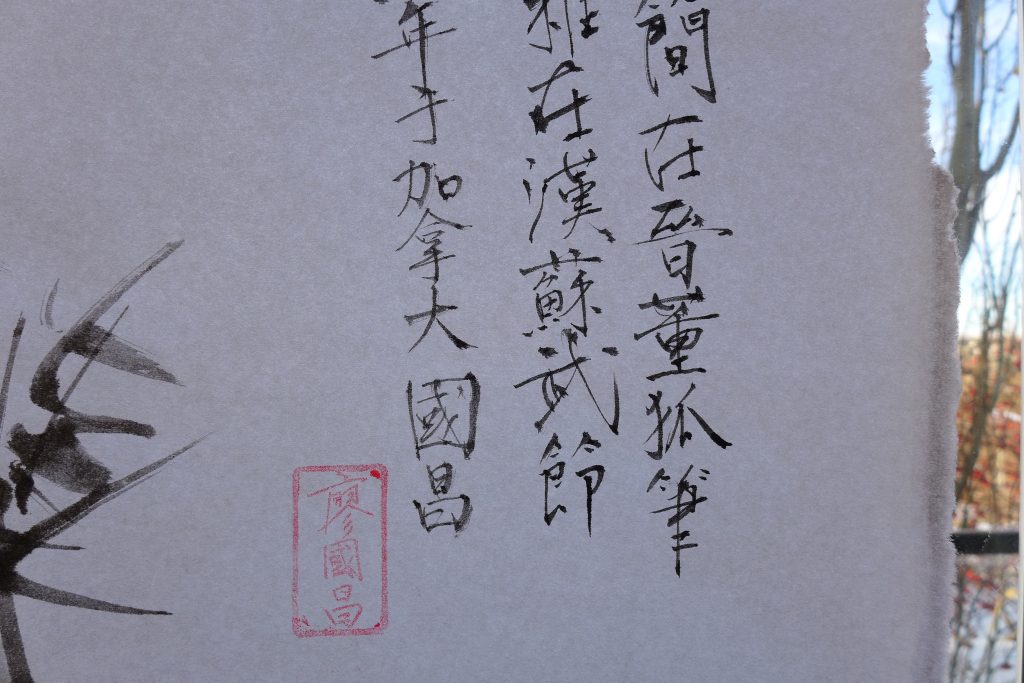 簡在晉董狐筆
椎在漢蘇武節
年于加拿大 國昌
廖國昌